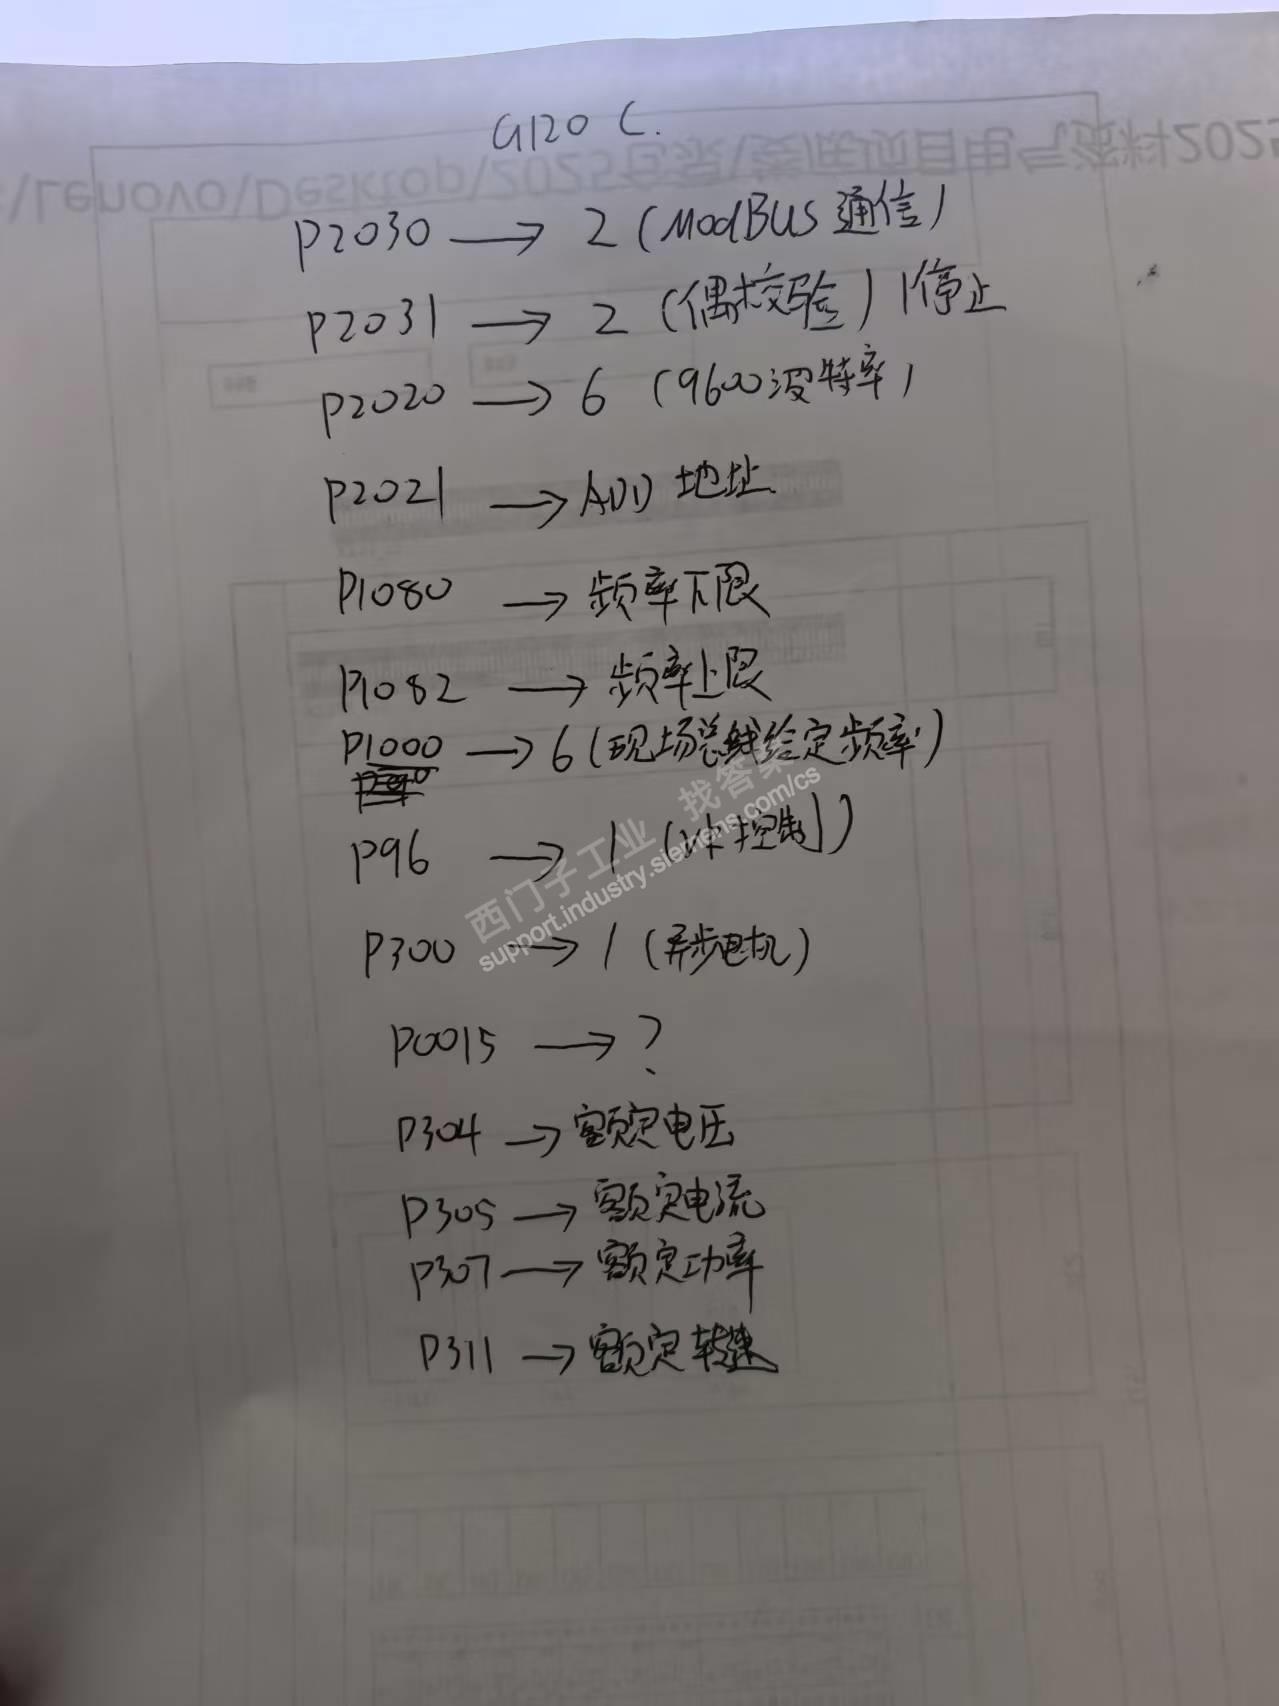 G120 C.
P2030 → 2 (ModBUS 通信)
P2031 → 2 (偶校验) 1停止
P2020 → 6 (9600波特率)
P2021 → ADD 地址
P1080 → 频率下限
P1082 → 频率上限
P1000 → 6 (现场总线给定频率)
P96 → 1 ( 控制)
P300 → 1 (异步电机)
P0015 → ?
P304 → 额定电压
P305 → 额定电流
P307 → 额定功率
P311 → 额定转速
西门子工业 找答案
support.industry.siemens.com/cs
\Lenovo\Desktop\2025
项目电气资料2025